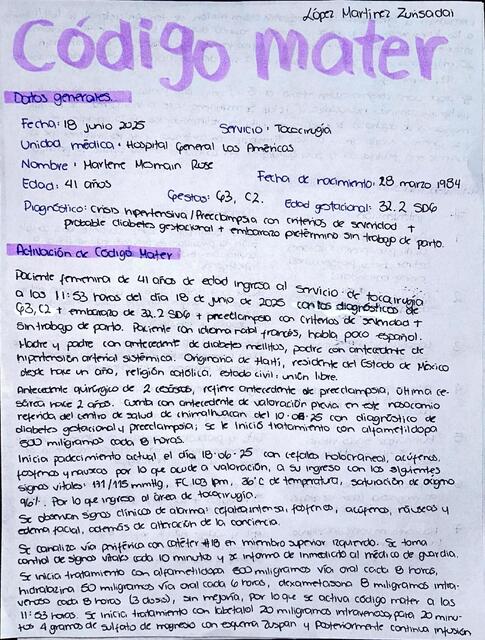 López Martinez Zurisadai
Código mater
Datos generales.
Fecha: 18 junio 2025 Servicio: Tococirugía
Unidad médica: Hospital General Las Américas
Nombre: Marlene Momain Rose
Fecha de nacimiento: 28 marzo 1984
Edad: 41 años
Gestas: G3, C2. Edad gestacional: 32.2 SDG
Diagnóstico: crisis hipertensiva / Preeclampsia con criterios de severidad +
probable diabetes gestacional + embarazo pretérmino sin trabajo de parto.
Activación de Código Mater
Paciente femenina de 41 años de edad ingresa al servicio de tococirugía
a las 11:53 horas del día 18 de junio de 2025 con los diagnósticos de
G3, C2 + embarazo de 32.2 SDG + preeclampsia con criterios de severidad +
sin trabajo de parto. Paciente con idioma natal francés, habla poco español.
Madre y padre con antecedente de diabetes mellitus, padre con antecedente de
hipertensión arterial sistémica. Originaria de Haití, residente del Estado de México
desde hace un año, religión católica, estado civil: unión libre.
Antecedente quirúrgico de 2 cesáreas, refiere antecedente de preeclampsia, última ce-
sárea hace 2 años. Cuenta con antecedente de valoración previa en este nosocomio
referida del centro de salud de chimalhuacan del 10-06-25 con diagnóstico de
diabetes gestacional y preeclampsia; se le inició tratamiento con alfametildopa
500 miligramos cada 8 horas.
Inicia padecimiento actual el día 18-06-25 con cefalea holocraneal, acúfenos,
fosfenos y nauseas por lo que acude a valoración, a su ingreso con los siguientes
signos vitales: 191/115 mmHg, FC 103 lpm, 36°C de temperatura, saturación de oxígeno
96%. Por lo que ingresa al área de tococirugía.
Se observan signos clínicos de alarma: cefalea intensa, fosfenos, acúfenos, náuseas y
edema facial, además de alteración de la conciencia.
Se canaliza vía periférica con catéter #18 en miembro superior izquierdo. Se toma
control de signos vitales cada 10 minutos y se informa de inmediato al médico de guardia.
Se inicia tratamiento con alfametildopa 500 miligramos vía oral cada 8 horas,
hidralazina 50 miligramos vía oral cada 6 horas, dexametasona 8 miligramos intra-
venoso cada 8 horas (3 dosis), sin mejoría, por lo que se activa código mater a las
11:53 horas. Se inicia tratamiento con labetalol 20 miligramos intravenoso para 20 minu-
tos 4 gramos de sulfato de magnesio con esquema zuspan y posteriormente continua infusión